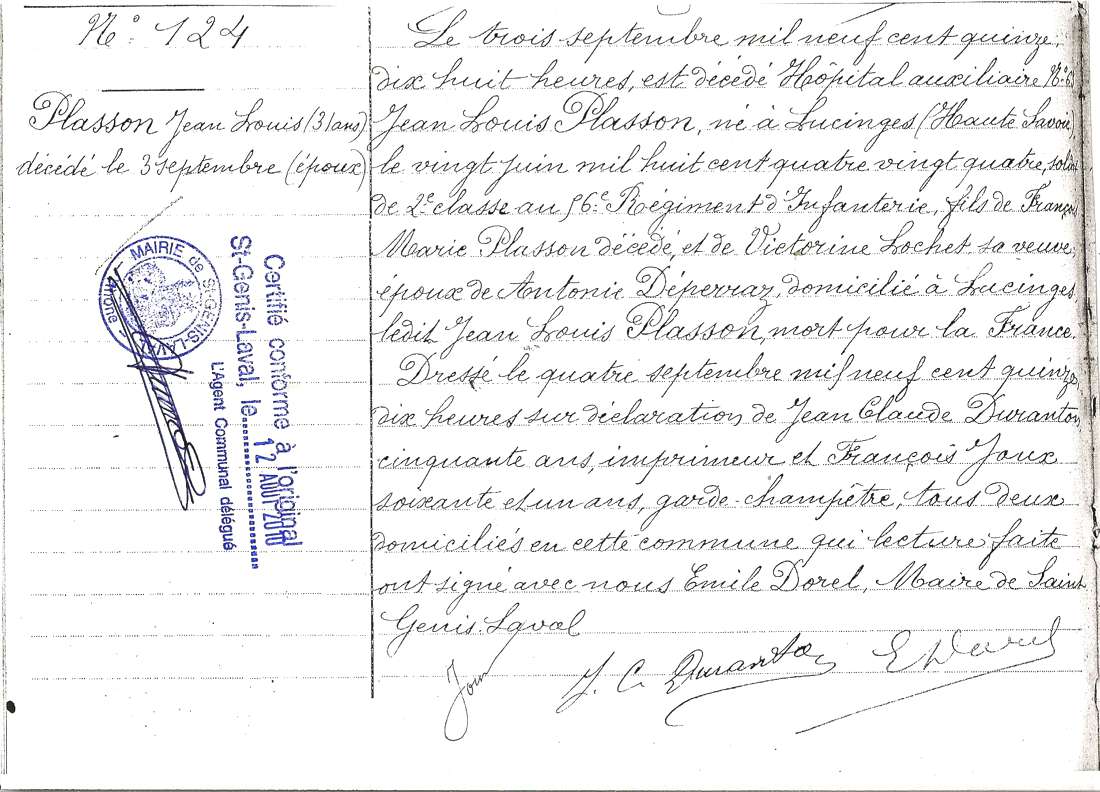 N° 124
Plasson Jean Louis (31 ans)
décédé le 3 septembre (époux)
MAIRIE de ST-GENIS-LAVAL
Rhône
Certifié conforme à l'original
St-Genis-Laval, le 12 AOUT 2010
L'Agent Communal délégué
Le trois septembre mil neuf cent quinze,
dix huit heures, est décédé Hôpital auxiliaire N°
Jean Louis Plasson, né à Lucinges (Haute Savoie),
le vingt juin mil huit cent quatre vingt quatre, soldat
de 2e classe au 56e Régiment d'Infanterie, fils de François
Marie Plasson décédé, et de Victorine Lochet sa veuve,
époux de Antonie Déperraz, domicilié à Lucinges
ledit Jean Louis Plasson, mort pour la France.
Dressé le quatre septembre mil neuf cent quinze,
dix heures sur déclaration de Jean Claude Duranton,
cinquante ans, imprimeur et François Joux
soixante et un ans, garde-champêtre, tous deux
domiciliés en cette commune qui lecture faite
ont signé avec nous Emile Dorel, Maire de Saint
Genis-Laval
Joux J. C. Duranton E Dorel